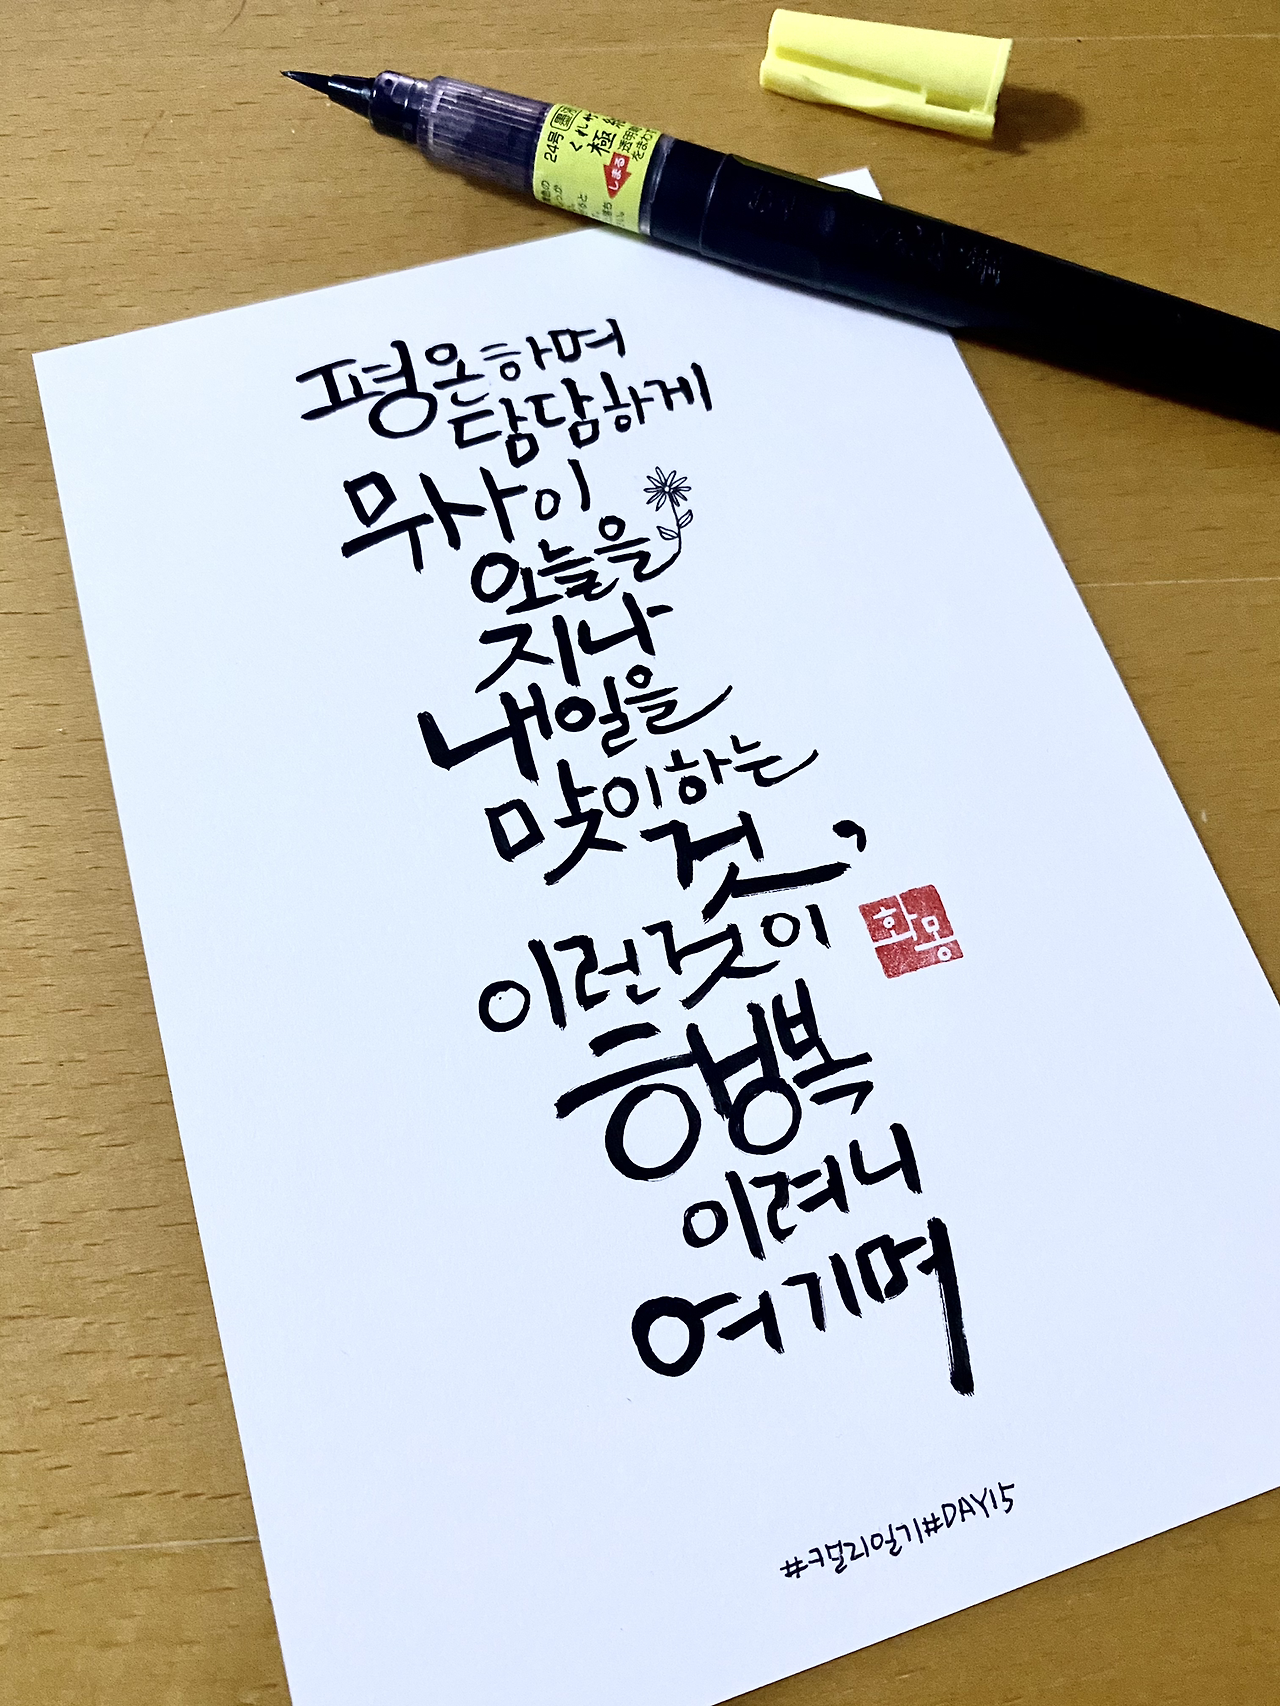 24号
くれ竹
極細
しまる
透明軸
をまわす
평온하며
담담하게
무사이
오늘을
지나
내일을
맞이하는
것,
이런것이
행복
이려니
여기며
화몽
#캘리일기#DAY15